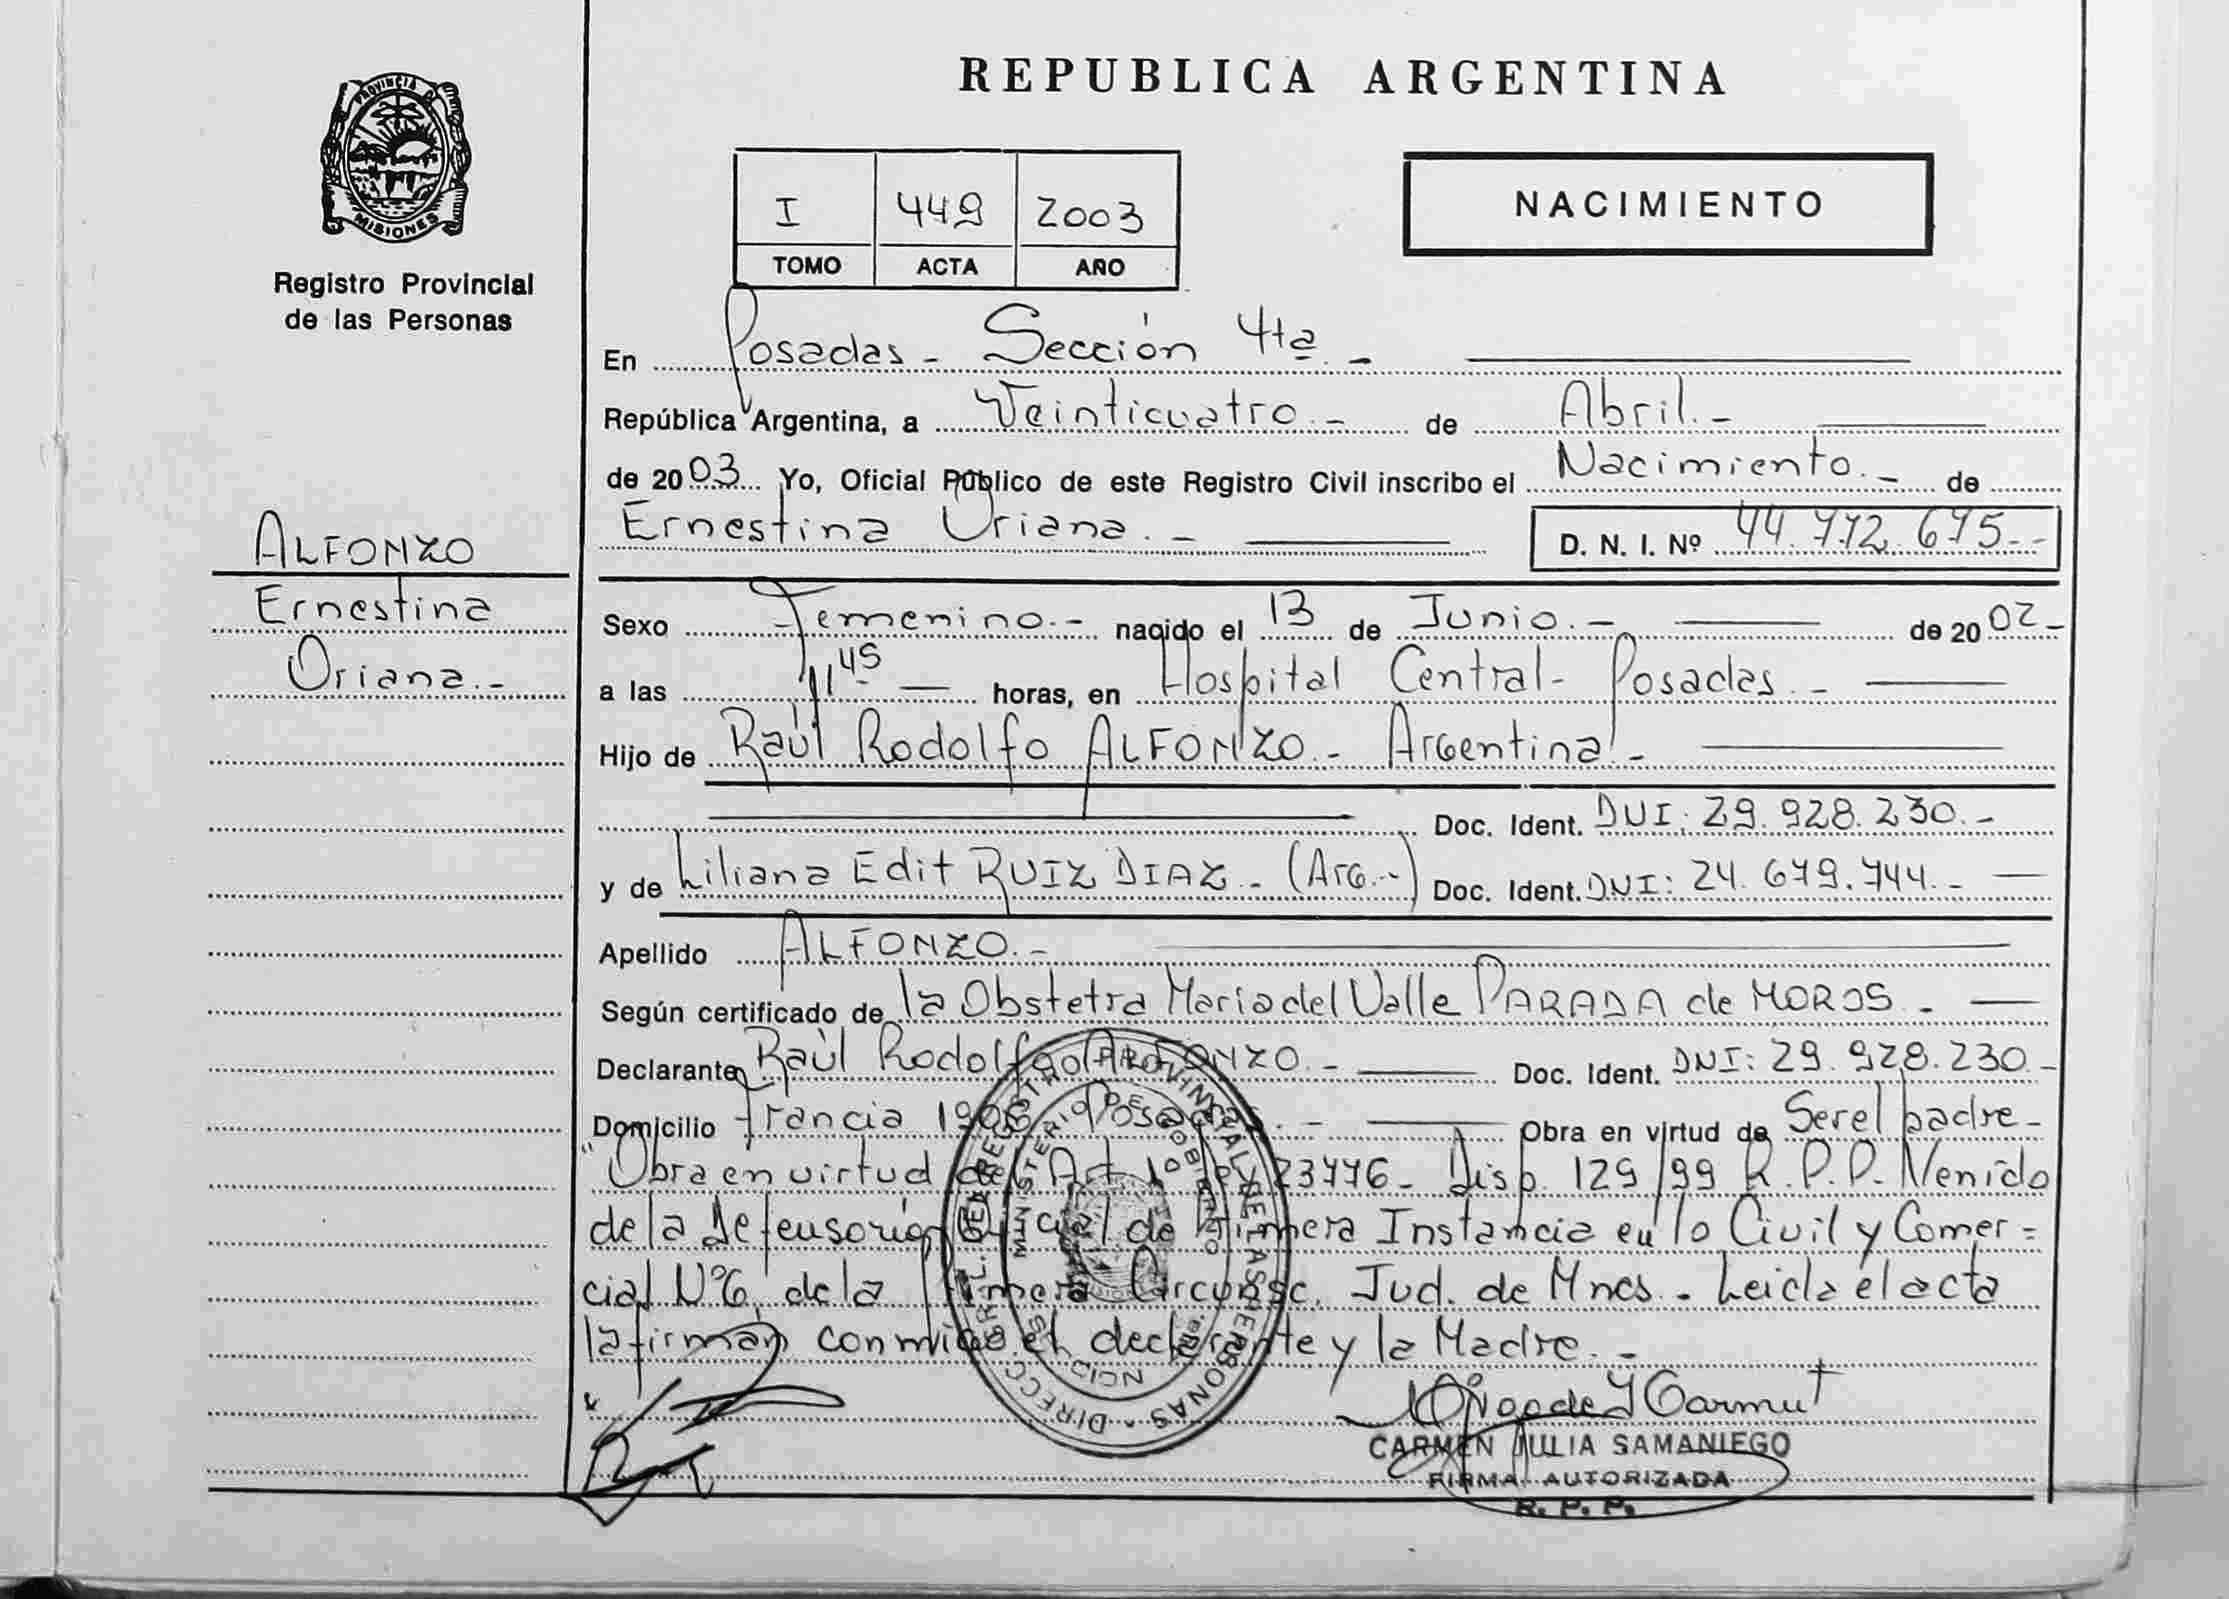 REPUBLICA ARGENTINA
PROVINCIA D
MISIONES
Registro Provincial
de las Personas
I 449 2003
TOMO ACTA AÑO
NACIMIENTO
En Posadas - Sección 4ta. -
República Argentina, a Veinticuatro. - de Abril. -
de 2003 Yo, Oficial Público de este Registro Civil inscribo el Nacimiento. - de
Ernestina Oriana. - D. N. I. Nº 44.772.675.-
ALFONZO
Ernestina
Oriana. -
Sexo Femenino. - nacido el 13 de Junio. - de 2002 -
a las 11 45 horas, en Hospital Central - Posadas. -
Hijo de Raúl Rodolfo ALFONZO. - Argentina. -
Doc. Ident. DNI: 29.928.230. -
y de Liliana Edit RUIZ DIAZ. - (Arg. -) Doc. Ident. DNI: 24.679.744. -
Apellido ALFONZO. -
Según certificado de la Obstetra Maria del Valle PARADA de MOROS. -
Declarante Raúl Rodolfo ALFONZO. - Doc. Ident. DNI: 29.928.230. -
Domicilio Francia Posadas. - Obra en virtud de Ser el padre -
"Obra en virtud del Art. 23776 - Disp. 129/99 R.P.P. Venido
de la Defensoría Oficial de Primera Instancia en lo Civil y Comer=
cial Nº6, de la Primera Circunsc. Jud. de Mnes. - Leida el acta
la firman conmigo el declarante y la Madre. -
DIRECC. GRAL. DEL REGISTRO PROVINCIAL DE LAS PERSONAS
MINISTERIO DE GOBIERNO
CARMEN JULIA SAMANIEGO
FIRMA AUTORIZADA
R. P. P.